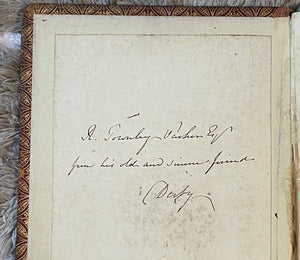 R. Townley Parker Esq
from his old and sincere friend
Derby